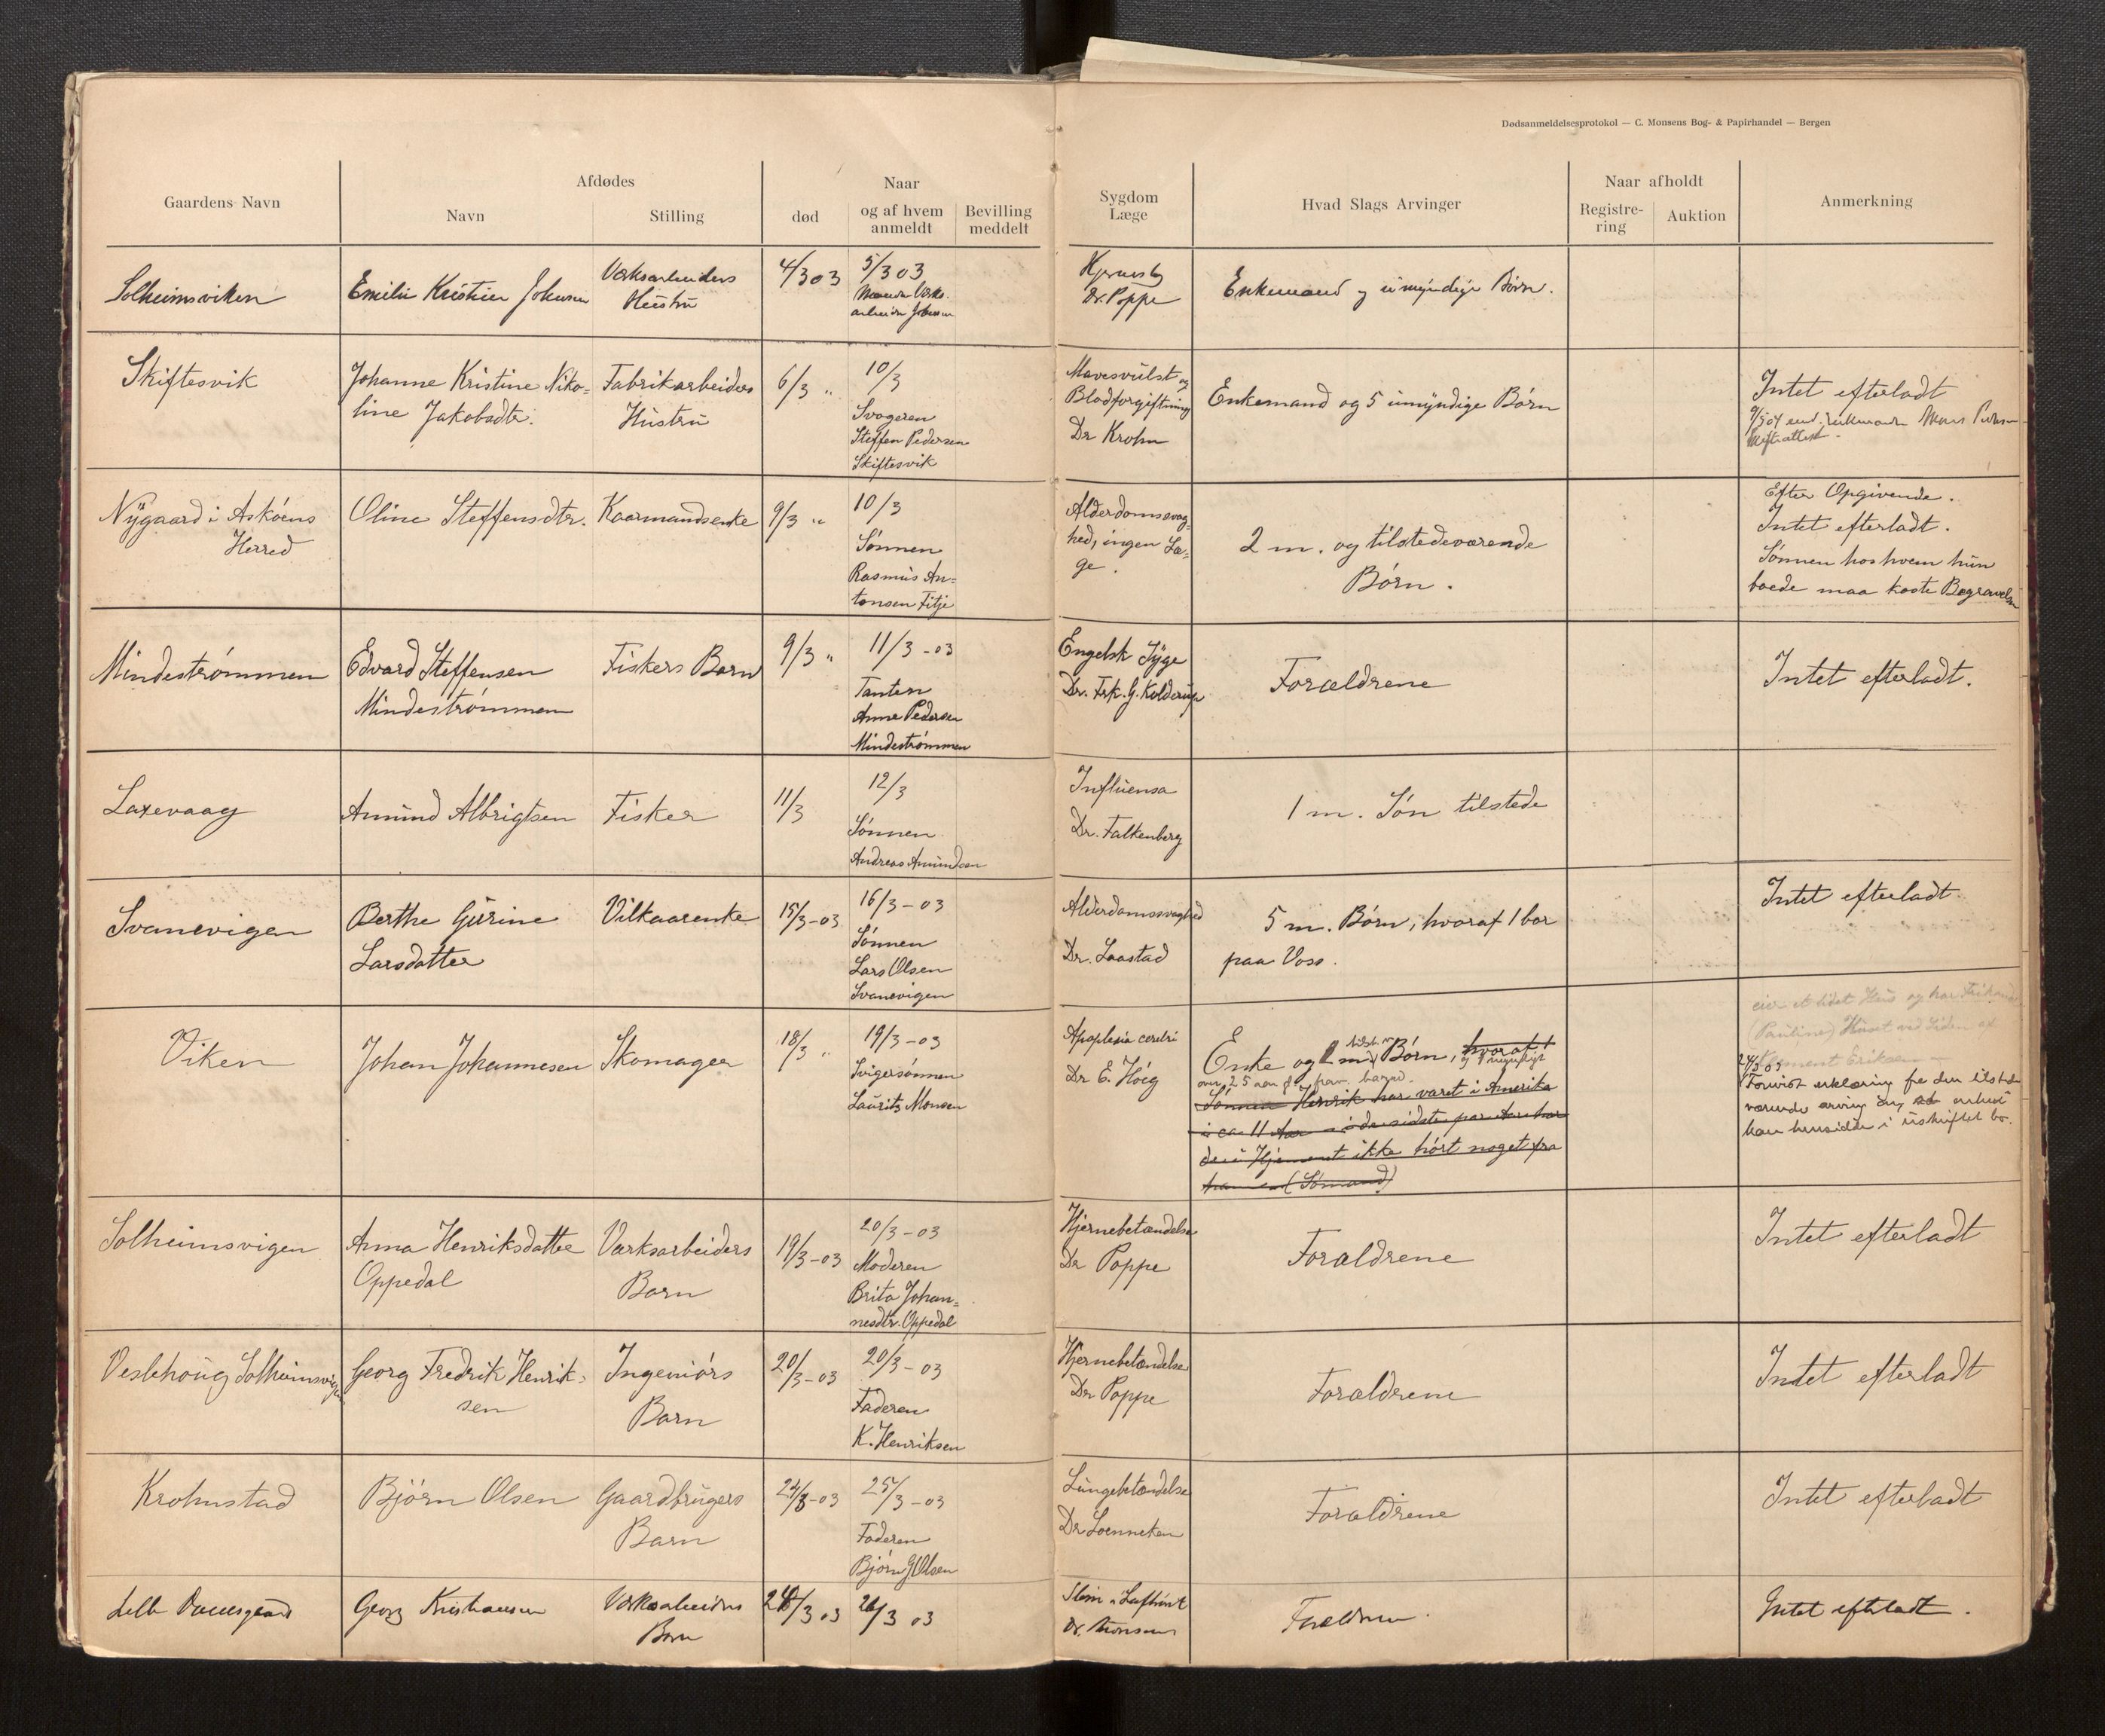 Dødsanmeldelsesprotokol — C. Monsens Bog- & Papirhandel — Bergen
Gaardens Navn
Afdødes
Navn
Stilling
død
Naar
og af hvem
anmeldt
Bevilling
meddelt
Sygdom
Læge
Hvad Slags Arvinger
Naar afholdt
Registre-
ring
Auktion
Anmerkning
Solheimsviken
Emilie Kristine Johnsen
Værksarbeiders
Hustru
4/3 03
5/3 03
Dr. Poppe
Enkemand og umyndige Børn.
Skiftesvik
Johanne Kristine Niko=
line Jakobsdtr.
Fabrikarbeiders
Hustru
6/3 "
10/3
Svogeren
Steffen Pedersen
Skiftesvik
Mavesvulst og
Blodforgiftning
Dr Krohn
Enkemand og 5 umyndige Børn
Intet efterladt
Nygaard i Askøens
Herred
Oline Steffensdtr.
Kaarmandsenke
9/3 "
10/3
Sønnen
Rasmus An=
tonsen Fitje
Alderdomssvag=
hed, ingen Læ=
ge.
2 m. og tilstedeværende
Børn.
Efter Opgivende.
Intet efterladt.
Sønnen hos hvem hun
boede maa koste Begravelsen
Mindestrømmen
Edvard Steffensen
Mindestrømmen
Fiskers Barn
9/3 "
11/3 - 03
Tanten
Anne Pedersen
Mindestrømmen
Engelsk Syge
Dr. Frk. G. Kolderup
Forældrene
Intet efterladt.
Laxevaag
Amund Albrigtsen
Fisker
11/3
12/3
Sønnen
Andreas Amundsen
Influensa
Dr. Falkenberg
1 m. Søn tilstede
Svanevigen
Berthe Gurine
Larsdatter
Vilkaarenke
15/3-03
16/3-03
Sønnen
Lars Olsen
Svanevigen
Alderdomssvaghed
Dr. Laastad
5 m. Børn, hvoraf 1 bor
paa Voss.
Intet efterladt
Viken
Johan Johannesen
Skomager
18/3 "
19/3-03
Svigersønnen
Lauritz Monsen
Apoplexia cerebri
Dr E. Høeg
Enke og 2 tilst. m. Børn, hvoraf 1
Sønnen Henrik har været i Amerika
i ca 11 Aar - i de sidste par Aar har
de i Hjemmet ikke hørt noget fra
ham (Sømand)
eier et lidet Hus og har
(Pauline) Huset ved Siden af
24/3 03
Forevist erklæring fra den tilstede
værende arving om, at enken
kan hensidde i uskiftet bo.
Solheimsvigen
Anna Henriksdatter
Oppedal
Værksarbeiders
Barn
19/3-03
20/3-03
Moderen
Brita Johan=
nesdtr. Oppedal
Hjernebetændelse
Dr Poppe
Forældrene
Intet efterladt
Veslehoug Solheimsvigen
Georg Fredrik Henrik=
sen
Ingeniørs
Barn
20/3-03
20/3-03
Faderen
K. Henriksen
Hjernebetændelse
Dr. Poppe
Forældrene
Intet efterladt
Krohnstad
Bjørn Olsen
Gaardbrugers
Barn
24/3-03
25/3-03
Faderen
Bjørn G Olsen
Lungebetændelse
Dr Loenneken
Forældrene
Intet efterladt
Lille Damsgaard
Georg Kristiansen
Værksarbeiders
Barn
24/3 03
26/3 03
Dr. Monsen
Forældrene
Intet efterladt.